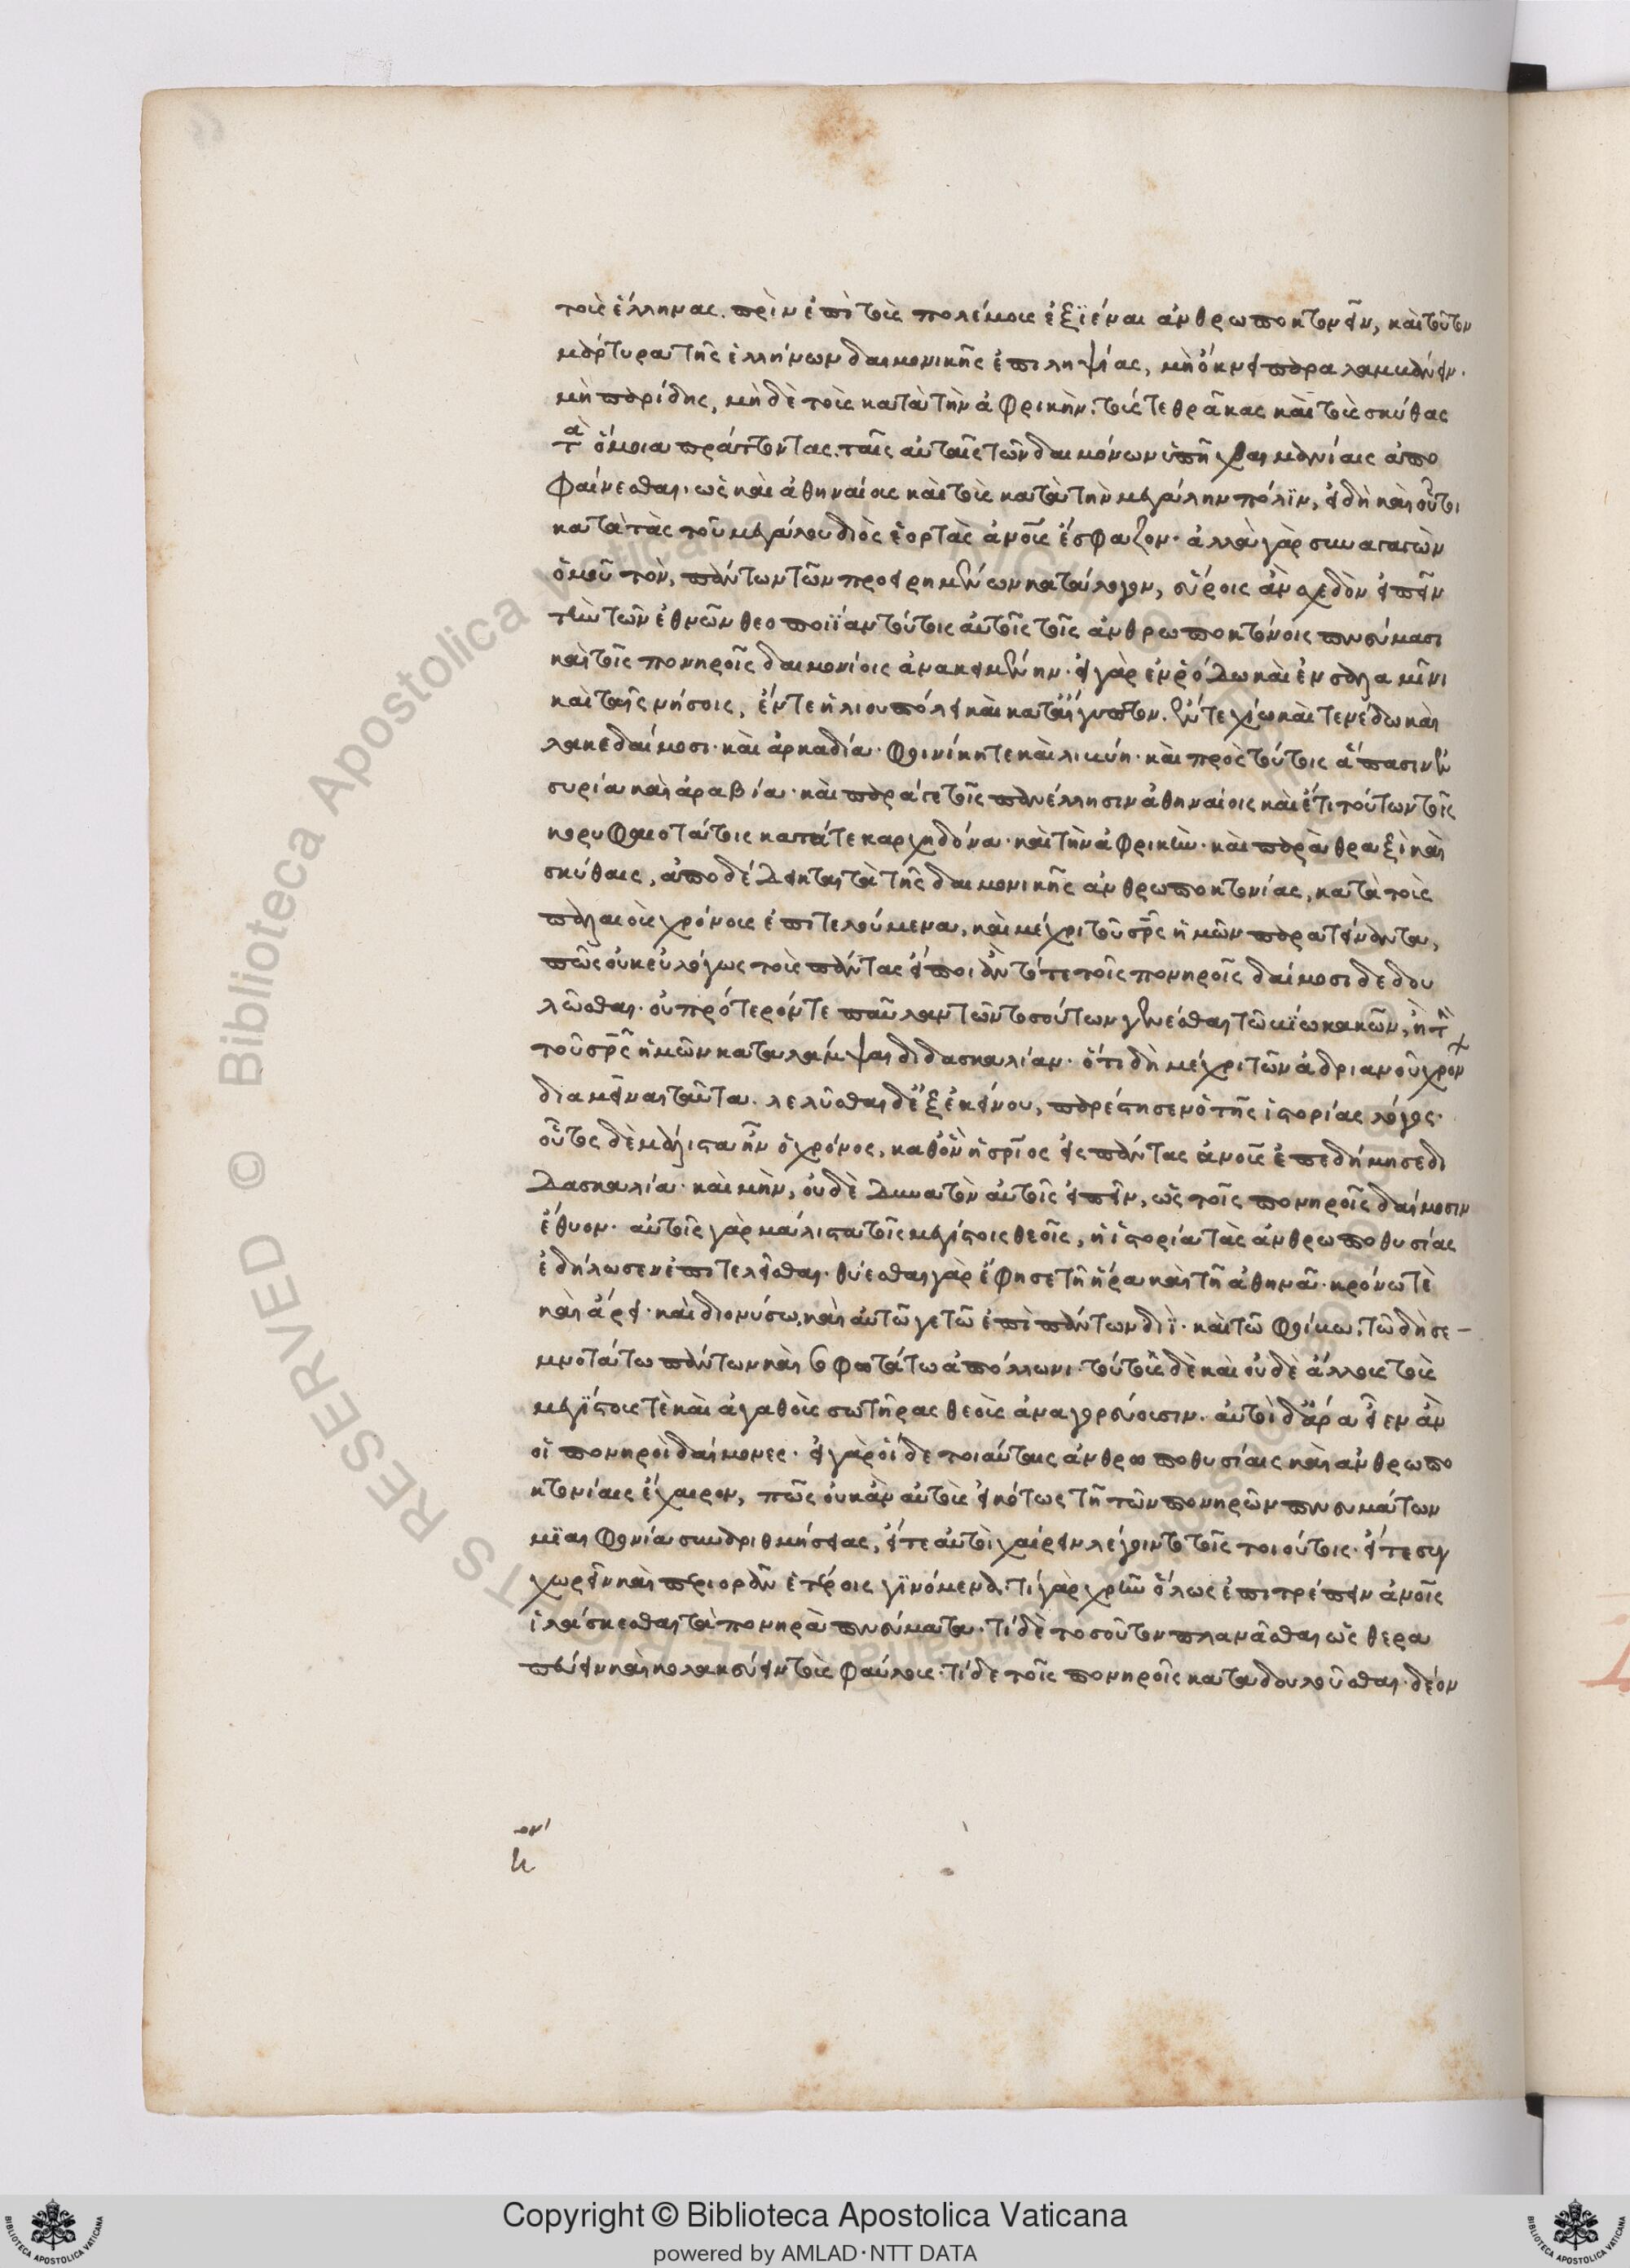 τοὺς ἕλληνας. πρὶν ἐπὶ τοὺς πολέμους ἐξϊέναι ἀνθρωποκτονεῖν, καὶ τοῦτον
μάρτυρα τῆς ἑλλήνων δαιμονικῆς ἐπιληψίας, μὴ ὄκνει παραλαμβάνειν.
μὴ παρίδης, μὴδὲ τοὺς κατὰ τὴν ἀφρικὴν. τούς τε θρᾶκας καὶ τοὺς σκύθας
τὰ ὅμοια πράττοντας. ταῖς αὐταῖς τῶν δαιμόνων ὑπῆχθαι μανίαις ἀπο
φαίνεσθαι. ὡς καὶ ἀθηναίους καὶ τοὺς κατὰ τὴν μεγάλην πόλϊν, εἰ δὴ καὶ οὗτοι
κατὰ τὰς τοῦ μεγάλου διὸς ἑορτὰς ἀνους ἔσφαζον. ἀλλὰ γὰρ συναγαγὼν
ὁμοῦ τὸν, πάντων τῶν προειρημένων κατάλογον, εὕροις ἂν σχεδὸν εἰπεῖν
τὴν τῶν ἐθνῶν θεοποιΐαν τούτοις αὐτοῖς τοῖς ἀνθρωποκτόνοις πνεύμασι
καὶ τοῖς πονηροῖς δαιμονίοις ἀνακειμένην. εἰ γὰρ ἐν ῥόδω καὶ ἐν σαλαμῖνι
καὶ ταῖς νήσοις, ἔν τε ἡλιουπόλει καὶ κατ' αἴγυπτον. ἔν τε χίω καὶ τενέδω καὶ
λακεδαίμονι. καὶ ἀρκαδία. φοινίκη τε καὶ λιβύη. καὶ πρὸς τούτοις ἅπασιν ἐν
συρία καὶ ἀραβία. καὶ παρά τε τοῖς πανέλλησιν ἀθηναίοις καὶ ἔτι τούτων τοῖς
κορυφαιοτάτοις κατά τε καρχηδόνα. καὶ τὴν ἀφρικὴν. καὶ παρὰ θραξὶ καὶ
σκύθαις, ἀποδέδεικται τὰ τῆς δαιμονικῆς ἀνθρωποκτονίας, κατὰ τοὺς
παλαιοὺς χρόνους ἐπιτελούμενα, καὶ μέχρι τοῦ σρς ἡμῶν παρατείναντα,
πῶς οὐκ εὐλόγως τοὺς πάντας εἴποι ἄν τότε τοῖς πονηροῖς δαίμοσι δεδου
λῶσθαι. οὐ πρότερόν τε παῦλαν τῶν τοσούτων γενέσθαι τῶ βίω κακῶν, ἢ τὴν
τοῦ σρς ἡμῶν καταλάμψαι διδασκαλίαν. ὅτι δὴ μέχρι τῶν ἀδριανοῦ χρόνων
διαμεῖναι ταῦτα. λελῦσθαι δ' ἐξ ἐκείνου, παρέστησεν ὁ τῆς ἱστορίας λόγος.
οὗτος δὲ μάλιστα ἦν ὁ χρόνος, καθ' ὃν ἡ σριος εἰς πάντας ἀνους ἐπεδήμησε δι
δασκαλία. καὶ μὴν, οὐδὲ δυνατὸν αὐτοῖς εἰπεῖν, ὡς τοῖς πονηροῖς δαίμοσιν
ἔθυον. αὐτοῖς γὰρ μάλιστα τοῖς μεγίστοις θεοῖς, ἡ ἱστορία τὰς ἀνθρωποθυσίας
ἐδήλωσεν ἐπιτελεῖσθαι. θύεσθαι γὰρ ἔφησε τῆ ἥρα καὶ τῆ ἀθηνᾶ. κρόνω τὲ
καὶ ἄρει. καὶ διονύσω, καὶ αὐτῶ γε τῶ ἐπὶ πάντων διΐ. καὶ τῶ φοίβω. τῶ δὴ σε-
μνοτάτω πάντων καὶ σοφωτάτω ἀπόλλωνι. τούτους δὲ καὶ οὐδὲ ἄλλους τοὺς
μεγΐστους τὲ καὶ ἀγαθοὺς σωτῆρας θεοὺς ἀναγορεύουσιν. αὐτοὶ δ' ἄρα εἶεν ἂν
οἱ πονηροὶ δαίμονες. εἰ γὰρ οἵδε τοιαύταις ἀνθρωποθυσίαις καὶ ἀνθρωπο
κτονίαις ἔχαιρον, πῶς οὐκ ἂν αὐτοὺς εἰκότως τῆ τῶν πονηρῶν πνευμάτων
μϊαιφονία συναριθμήσειας, εἴτε αὐτοὶ χαίρειν λέγοιντο τοῖς τοιούτοις. εἴτε συγ
χωρεῖν καὶ περιορᾶν ἑτέροις γϊνόμενα. τί γὰρ χρῆν ὅλως ἐπιτρέπειν ἀνοις
ἱλάσκεσθαι τὰ πονηρὰ πνεύματα. τί δὲ τοσοῦτον πλανᾶσθαι ὡς θερα
πεύειν καὶ κολακεύειν τοὺς φαύλους. τί δὲ τοῖς πονηροῖς καταδουλοῦσθαι. δέον
Copyright © Biblioteca Apostolica Vaticana
powered by AMLAD·NTT DATA